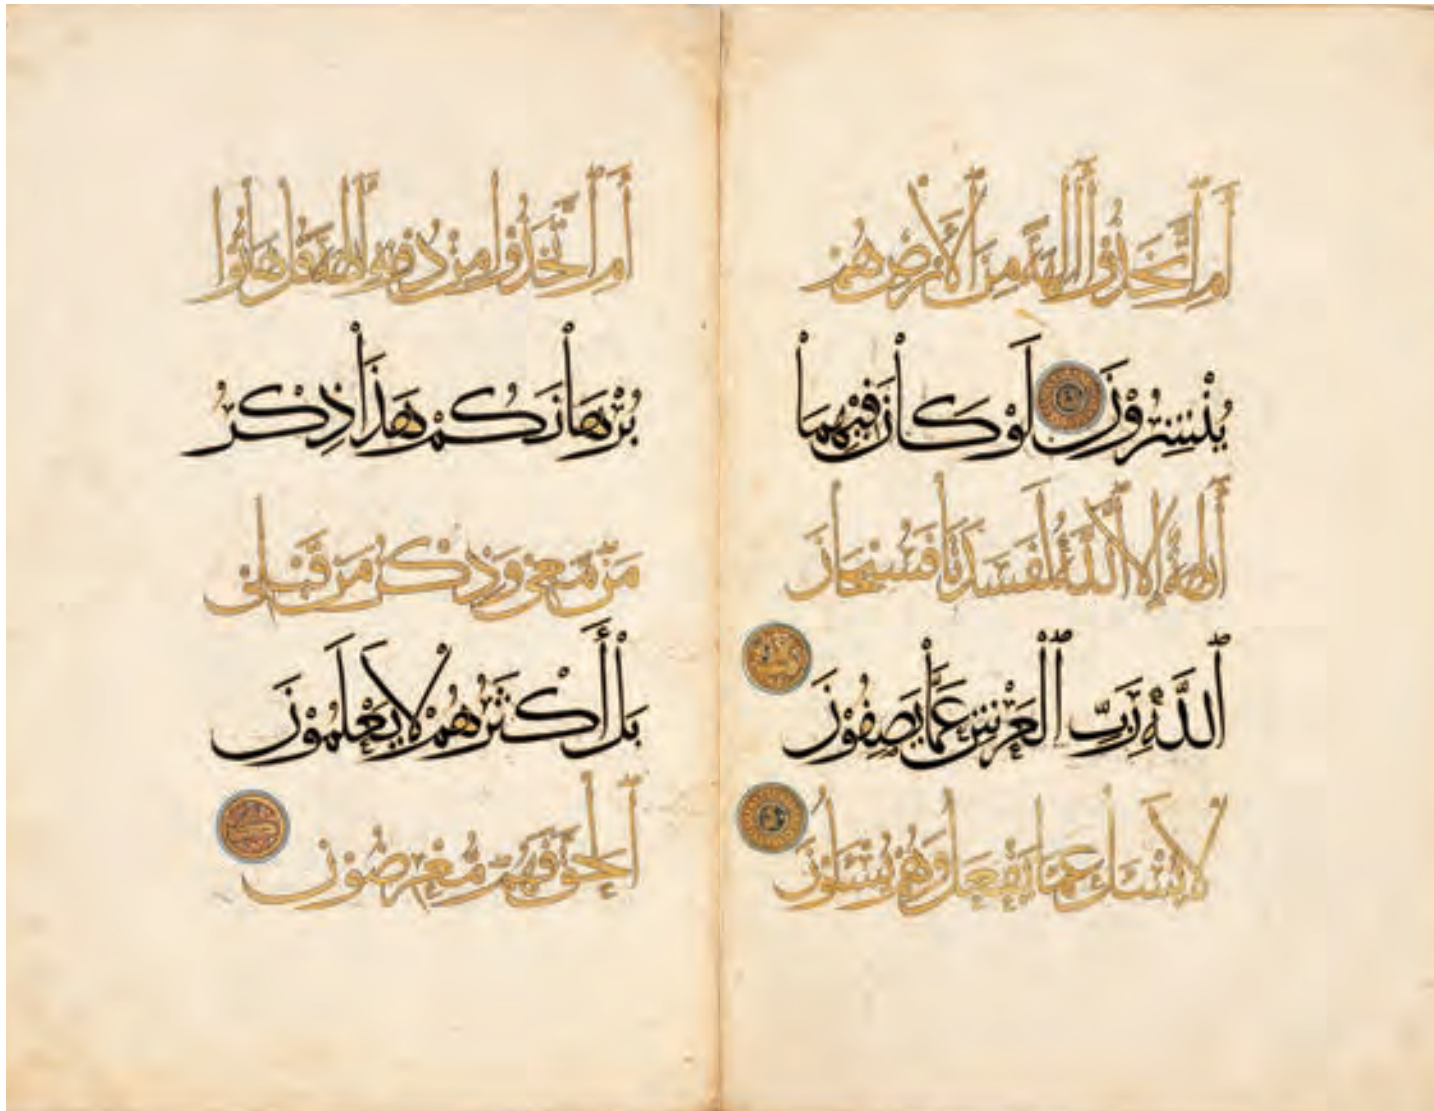 أَمِ ٱتَّخَذُوٓا۟ ءَالِهَةً مِنَ ٱلْأَرْضِ هُمْ
يُنْشِرُوْنَ لَوْ كَانَ فِيْهِمَا
ءَالِهَةٌ إِلَّا ٱللَّهُ لَفَسَدَتَا فَسُبْحَانَ
ٱللَّهِ رَبِّ ٱلْعَرْشِ عَمَّا يَصِفُوْنَ
لَا يُسْـَٔلُ عَمَّا يَفْعَلُ وَهُمْ يُسْـَٔلُوْنَ
أَمِ ٱتَّخَذُوا مِنْ دُوْنِهِ ءَالِهَةً قُلْ هَاتُوْا
بُرْهَانَكُمْ هَذَا ذِكْرُ
مَنْ مَّعِيَ وَذِكْرُ مَنْ قَبْلِي
بَلْ أَكْثَرُهُمْ لَا يَعْلَمُوْنَ
ٱلْحَقَّ فَهُمْ مُّعْرِضُوْنَ